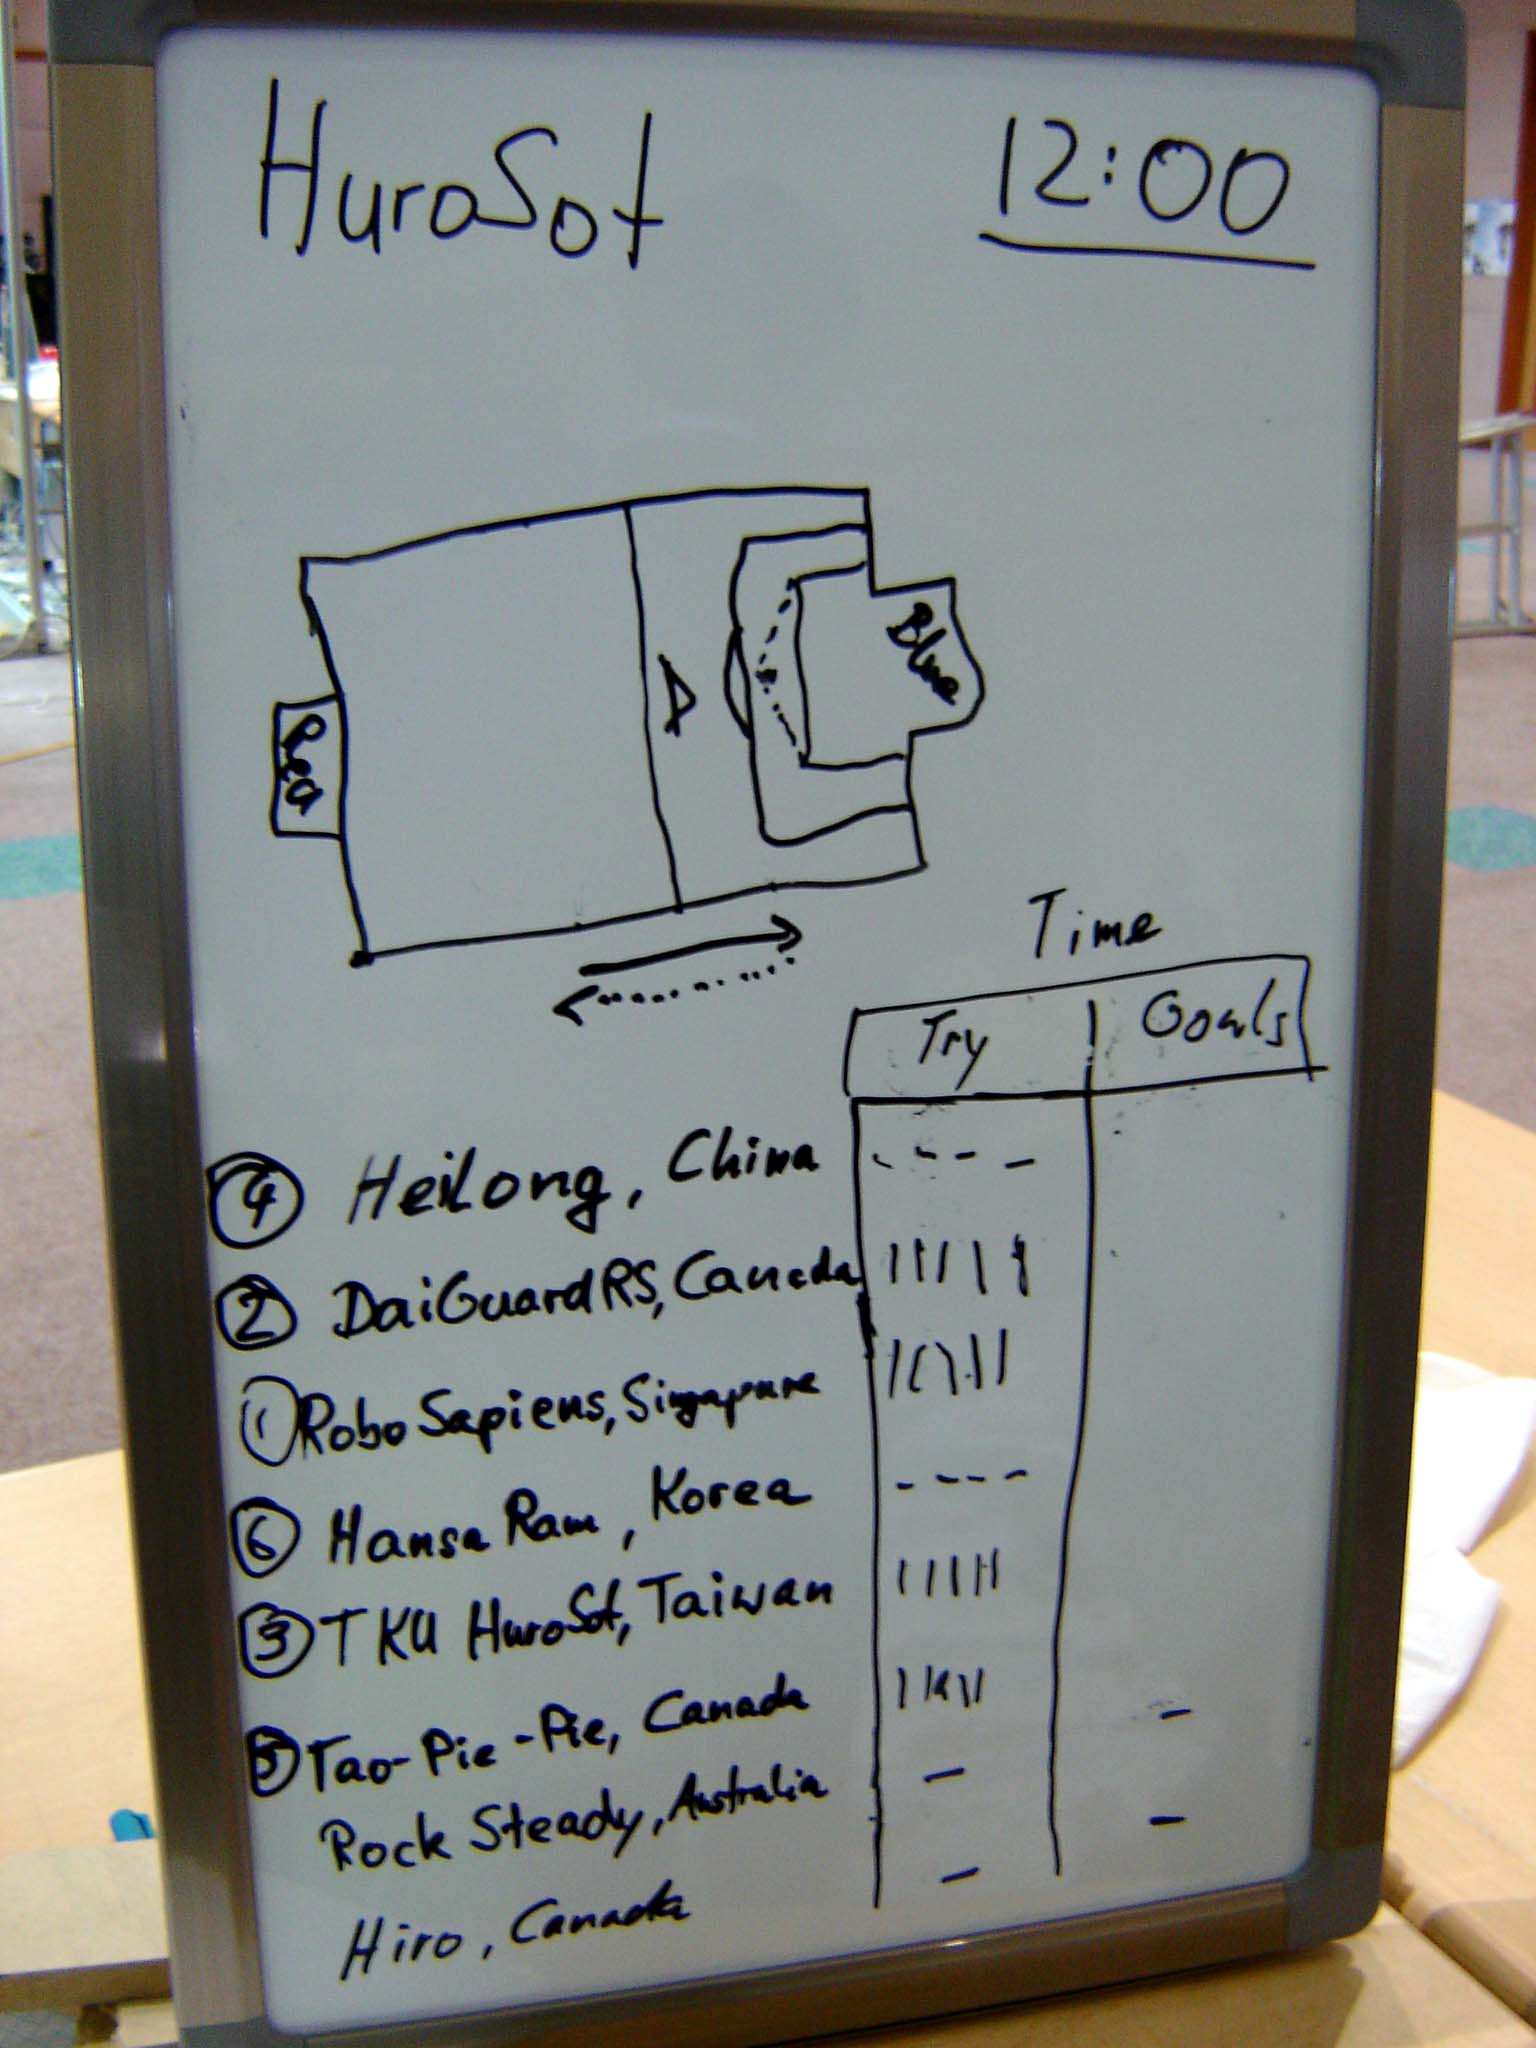 HuroSot 12:00
Red
Blue
Time
Try Goals
4 Heilong, China
2 DaiGuardRS, Canada
1 Robo Sapiens, Singapure
6 Hansa Ram, Korea
3 TKU HuroSot, Taiwan
5 Tao-Pie-Pie, Canada
Rock Steady, Australia
Hiro, Canada